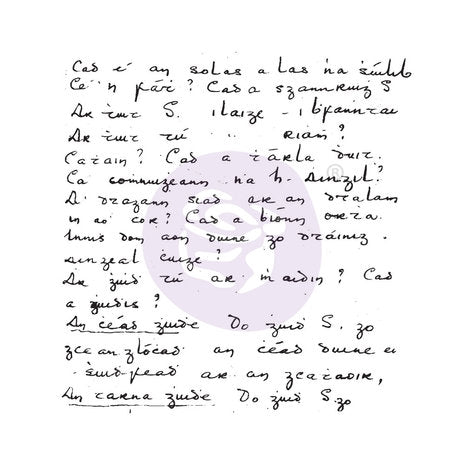 Cad é an solas a las 'na ṡúilib
Cé'n fáṫ? Cad a sgannruig S
Ar ṫuit S. i laige - i bfanntai
Ar ṫuit tú .. riaṁ?
Caṫain? Cad a ṫárla duit.
Ca gcomnuigeann na h. aingil?
A' dtagann siad ar an dtalaṁ
in ao cor? Cad a bíonn orṫa.
Innis dom aon duine go dtáinig.
aingeal ċuige?
Ar ġuid tú ar maidin? Cad
a ġuidis?
An céad ġuide Do ġuid S. go
gceanglócad an céad duine ei
ṡuid-fead ar an gcaṫaoir,
An tarna ġuide Do ġuid S. go